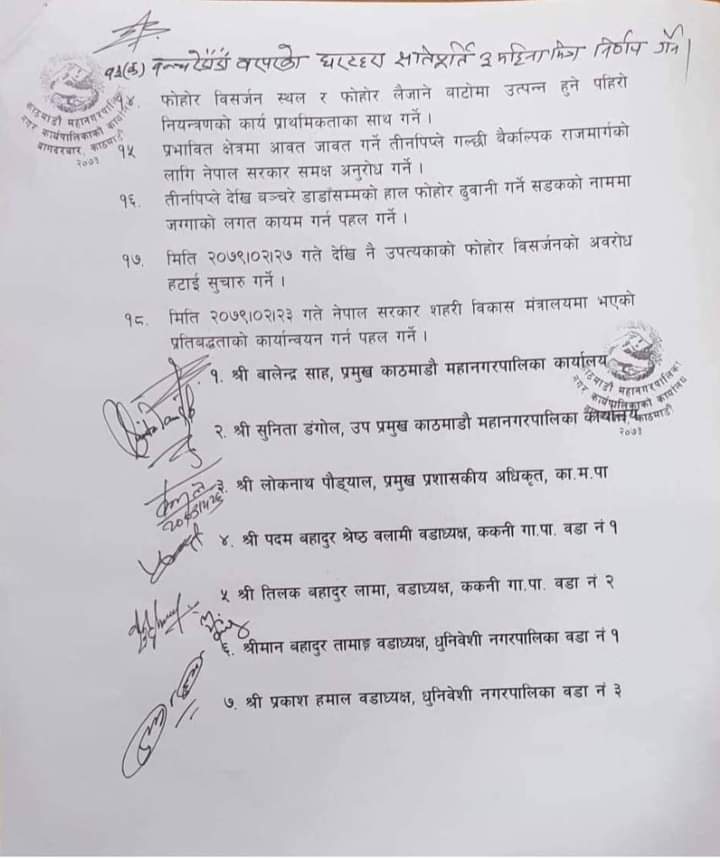 १३(क) वरपरको घरटहरा ३ महिना भित्र निर्णय गर्ने।
काठमाडौं महानगरपालिका
नगर कार्यपालिकाको कार्यालय
बागदरबार, काठमाडौं
२०७३
१४. फोहोर विसर्जन स्थल र फोहोर लैजाने बाटोमा उत्पन्न हुने पहिरो
नियन्त्रणको कार्य प्राथमिकताका साथ गर्ने।
१५ प्रभावित क्षेत्रमा आवत जावत गर्ने तीनपिप्ले गल्छी बैकल्पिक राजमार्गको
लागि नेपाल सरकार समक्ष अनुरोध गर्ने।
१६. तीनपिप्ले देखि बञ्चरे डाडाँसम्मको हाल फोहोर ढुवानी गर्ने सडकको नाममा
जग्गाको लगत कायम गर्न पहल गर्ने।
१७. मिति २०७९।०२।२७ गते देखि नै उपत्यकाको फोहोर विसर्जनको अवरोध
हटाई सुचारु गर्ने।
१८. मिति २०७९।०२।२३ गते नेपाल सरकार शहरी विकास मंत्रालयमा भएको
प्रतिबद्धताको कार्यान्वयन गर्न पहल गर्ने।
१. श्री बालेन्द्र साह, प्रमुख काठमाडौ महानगरपालिका कार्यालय
काठमाडौं महानगरपालिका
नगर कार्यपालिकाको कार्यालय
काठमाडौं
२०७३
२. श्री सुनिता डंगोल, उप प्रमुख काठमाडौ महानगरपालिका कार्यालय
३. श्री लोकनाथ पौड्याल, प्रमुख प्रशासकीय अधिकृत, का.म.पा
४. श्री पदम बहादुर श्रेष्ठ वलामी वडाध्यक्ष, ककनी गा.पा. वडा नं १
५ श्री तिलक बहादुर लामा, वडाध्यक्ष, ककनी गा.पा. वडा नं २
६. श्रीमान बहादुर तामाङ्ग वडाध्यक्ष, धुनिवेशी नगरपालिका वडा नं १
७. श्री प्रकाश हमाल वडाध्यक्ष, धुनिवेशी नगरपालिका वडा नं ३